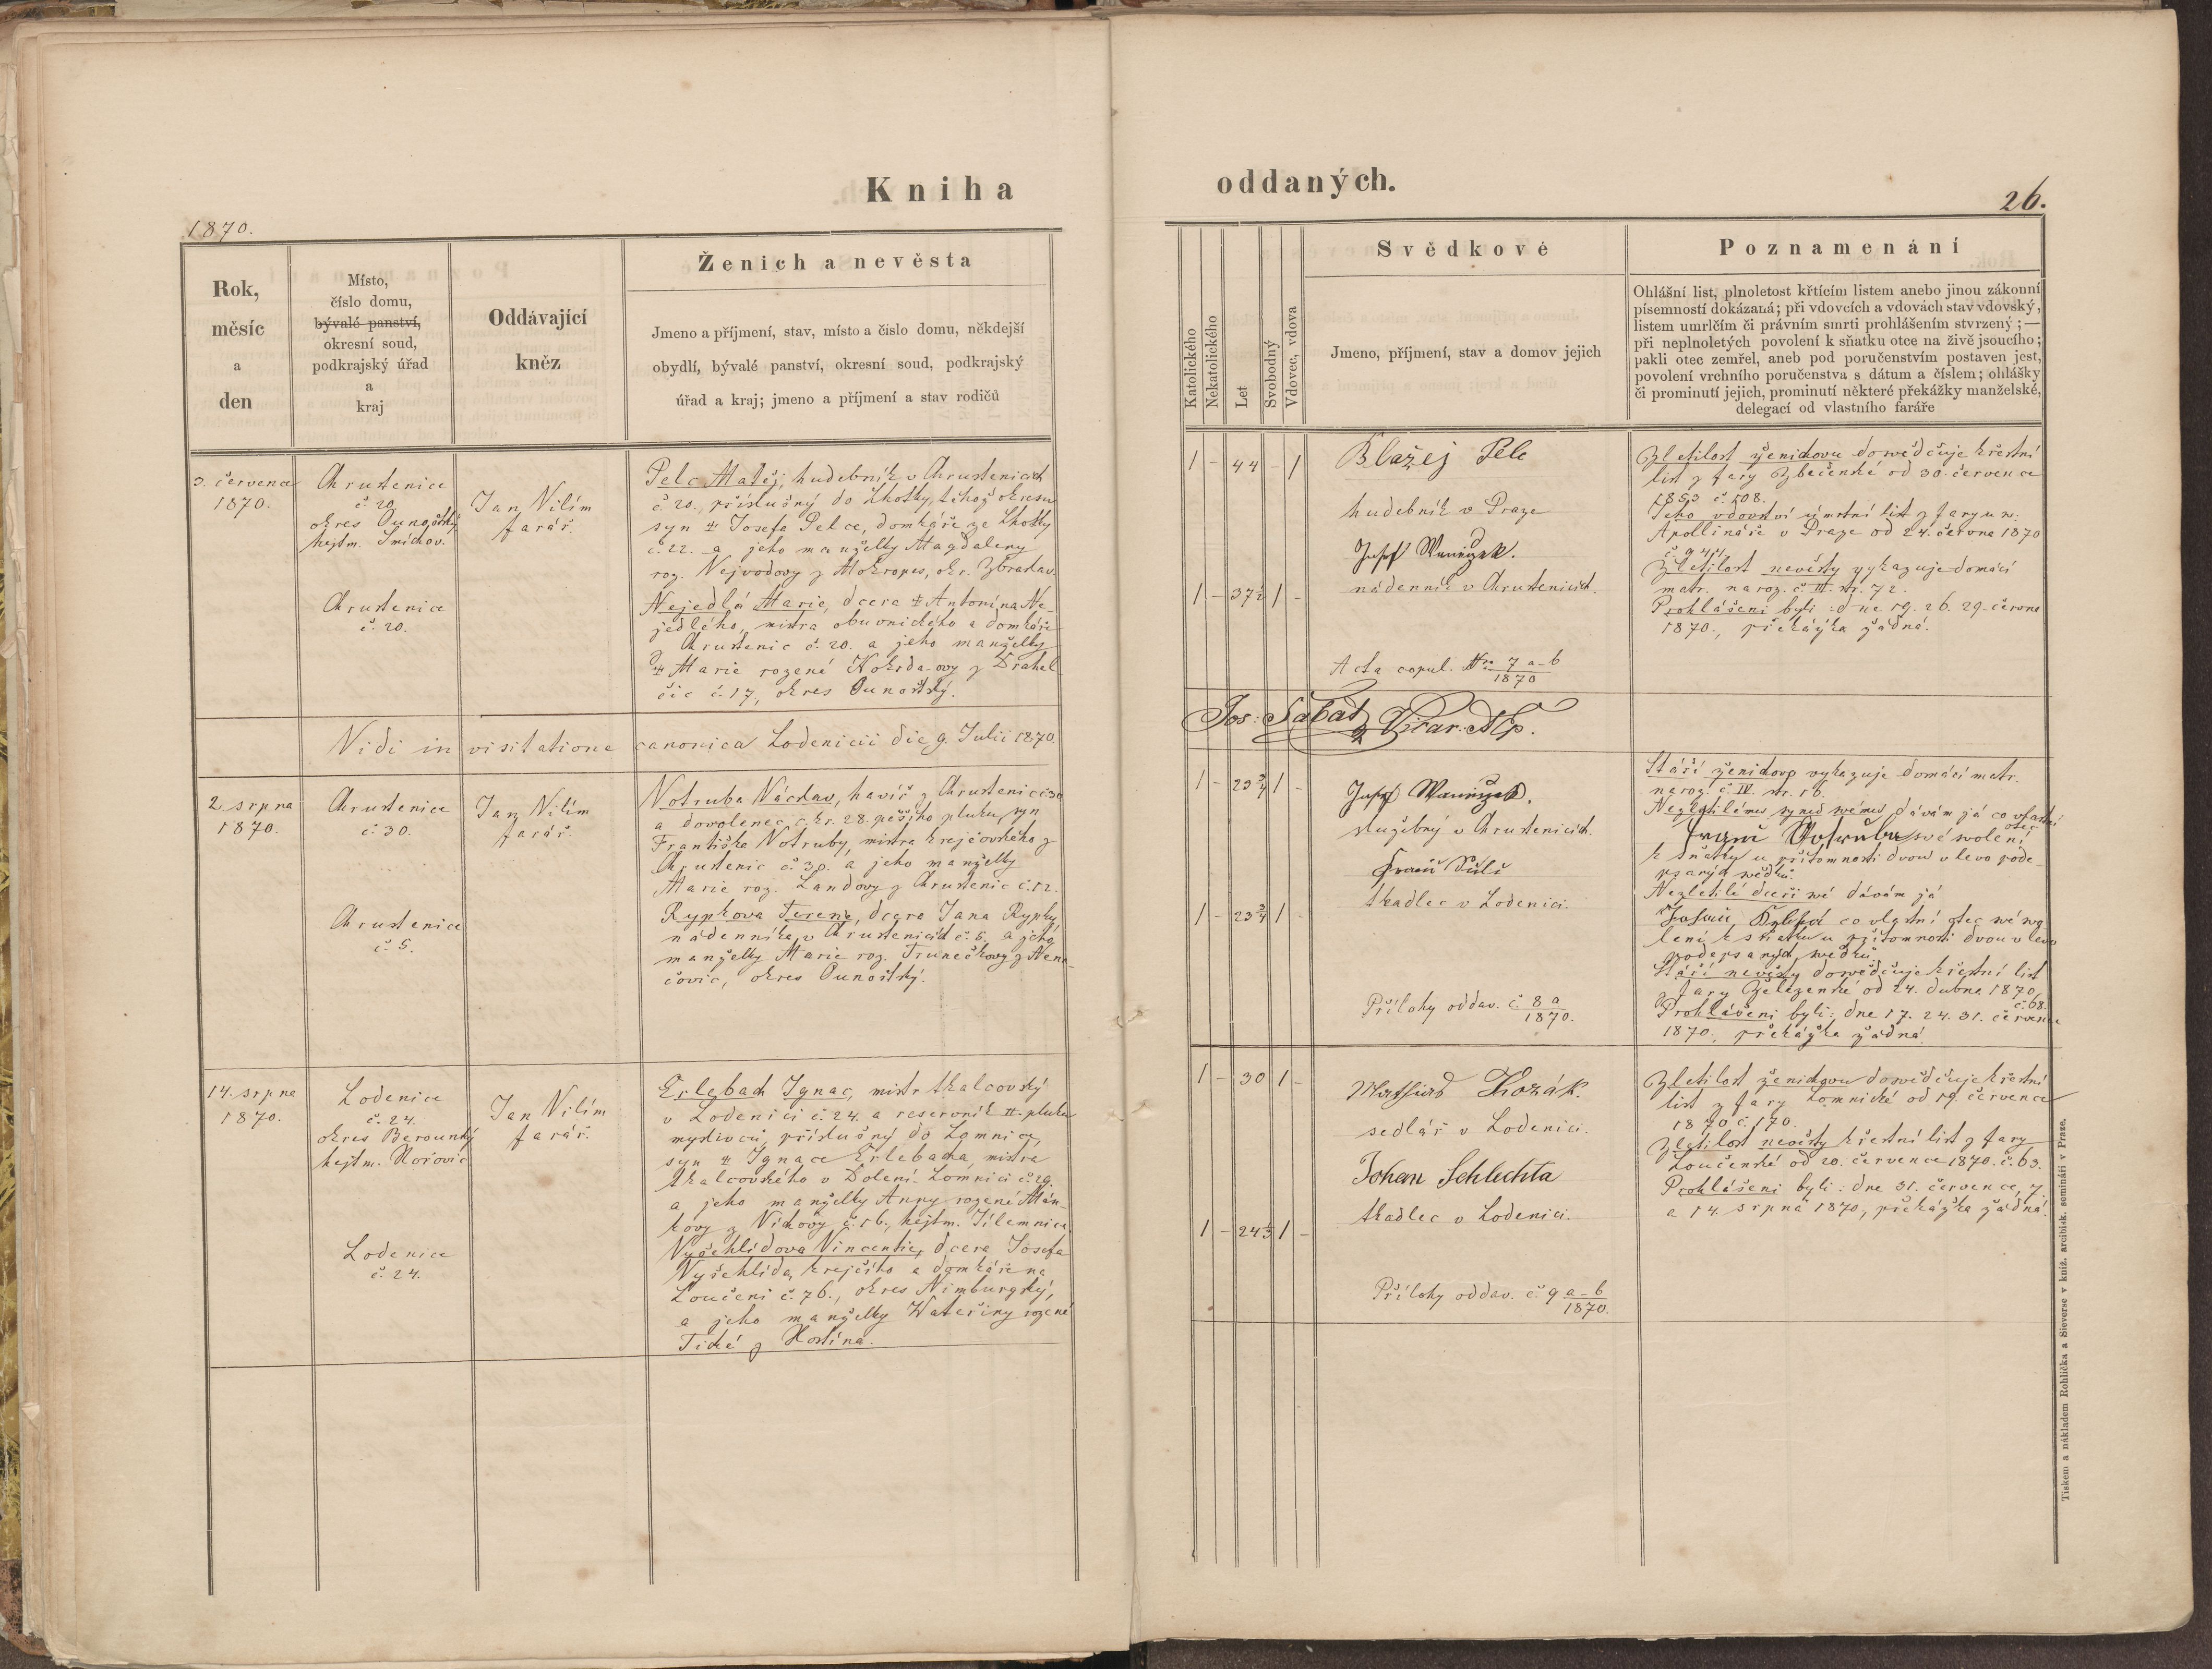 Kniha
oddaných.
1870.
26.
Rok,
měsíc
a
den
Místo,
číslo domu,
bývalé panství,
okresní soud,
podkrajský úřad
a
kraj
Oddávající
kněz
Ženich a nevěsta
Jmeno a příjmení, stav, místo a číslo domu, někdejší
obydlí, bývalé panství, okresní soud, podkrajský
úřad a kraj; jmeno a příjmení a stav rodičů
Katolického
Nekatolického
Let
Svobodný
Vdovec, vdova
Svědkové
Jmeno, příjmení, stav a domov jejich
Poznamenání
Ohlášní list, plnoletost křtícím listem anebo jinou zákonní
písemností dokázaná; při vdovcích a vdovách stav vdovský,
listem umrlčím či právním smrti prohlášením stvrzený; —
při neplnoletých povolení k sňatku otce na živě jsoucího;
pakli otec zemřel, aneb pod poručenstvím postaven jest,
povolení vrchního poručenstva s dátum a číslem; ohlášky
či prominutí jejich, prominutí některé překážky manželské,
delegací od vlastního faráře
3. července
1870.
Chrustenice
č. 20
okres Ounošťský
hejtm. Smíchov.
Jan Vilím
farář.
Pelc Matěj, hudebník v Chrustenicích
č. 20., příslušný do Lhotky, téhož okresu
syn ‡ Josefa Pelce, domkáře ze Lhotky
č. 22. a jeho manželky Magdaleny
roz. Nejvodovy z Mokropes, okr. Zbraslav.
Chrustenice
č. 20.
Nejedlá Marie, dcera ‡ Antonína Ne-
jedlého, mistra obuvnického a domkáře
z Chrustenic č. 20. a jeho manželky
‡ Marie rozené Kokrda-ovy z Drahel
čic č. 17, okres Ounošťský.
1 - 44 - 1
Blažej Pelc
hudebník v Praze
Josef
nádenník v Chrustenicích.
1 - 37½ 1 -
Acta copul. Nro 7 a-b
1870
Zletilost ženichovu dosvědčuje křestní
list z fary Zbečenské od 30. července
1853 č. 108.
Jeho vdovství úmrtní list z fary u sv.
Apollináře v Praze od 24. června 1870
Zletilost nevěsty vykazuje domácí
matr. naroz. č. III. str. 72.
Prohlášeni byli: dne 19. 26. 29. června
1870., překážka žádná.
Vidi in visitatione canonica Lodenicii die 9. Julii 1870.
Jos: Sabat
Vikar.
2. srpna
1870.
Chrustenice
č. 30.
Jan Vilím
farář.
Votruba Václav, havíř z Chrustenic č 30
a dovolenec c. kr. 28. pěšího pluku, syn
Františka Votruby, mistra krejčovského z
Chrustenic č. 30. a jeho manželky
Marie roz. Landovy z Chrustenic č. 12.
Chrustenice
č. 5.
Rypkova Terezie, dcera Jana Rypky
nádenníka v Chrustenicích č. 5. a jeho
manželky Marie roz. Trunečkovy z Nene-
čovic, okres Ounošťský.
1 - 23¾ 1 -
Josef
služebný v Chrustenicích.
tkadlec v Lodenici.
1 - 23¾ 1 -
Přílohy oddav. č. 8 a
1870.
Stáří ženichovo vykazuje domácí matr.
naroz. č. IV. str. 16.
Nezletilému synu svému dávám já co vlastní
otec
své svolení
k sňatku u přítomnosti dvou vlevo pode-
psaných svědků.
Nezletilé dceři své dávám já
co vlastní otec své svo
lení k sňatku u přítomnosti dvou vlevo
podepsaných svědků.
Stáří nevěsty dosvědčuje křestní list
z fary Železenské od 24. dubna 1870
č. 68.
Prohlášeni byli: dne 17. 24. 31. července
1870., překážka žádná.
14. srpna
1870.
Lodenice
č. 24.
okres Berounský
hejtm. Hořovic
Jan Vilím
farář.
Erlebach Ignac, mistr tkalcovský
v Lodenici č. 24. a reservník II. pluku
myslivců, příslušný do Lomnice,
syn ‡ Ignace Erlebacha, mistra
tkalcovského v Dolení Lomnici č. 29.
a jeho manželky Anny rozené Mán-
kovy z Víchovy č. 16., hejtm. Jilemnice
Lodenice
č. 24.
Vyšehlídova Vincentie, dcera Josefa
Vyšehlída, krejčího a domkáře na
Loučeni č. 76., okres Nimburgský,
a jeho manželky Kateřiny rozené
Tiché z Hostína.
1 - 30 1 -
Kozák.
sedlář v Lodenici.
Johan Schlechta
tkadlec v Lodenici.
1 - 24 1 -
Přílohy oddav. č. 9 a-b
1870.
Zletilost ženichovu dosvědčuje křestní
list z fary Lomnické od 19. července
1870 č. 170.
Zletilost nevěsty křestní list z fary
Loučenské od 20. července 1870. č. 63.
Prohlášeni byli: dne 31. července, 7.
a 14. srpna 1870, překážka žádná.
Tiskem a nákladem Rohlíčka a Sieverse v kníž. arcibisk. semináři v Praze.